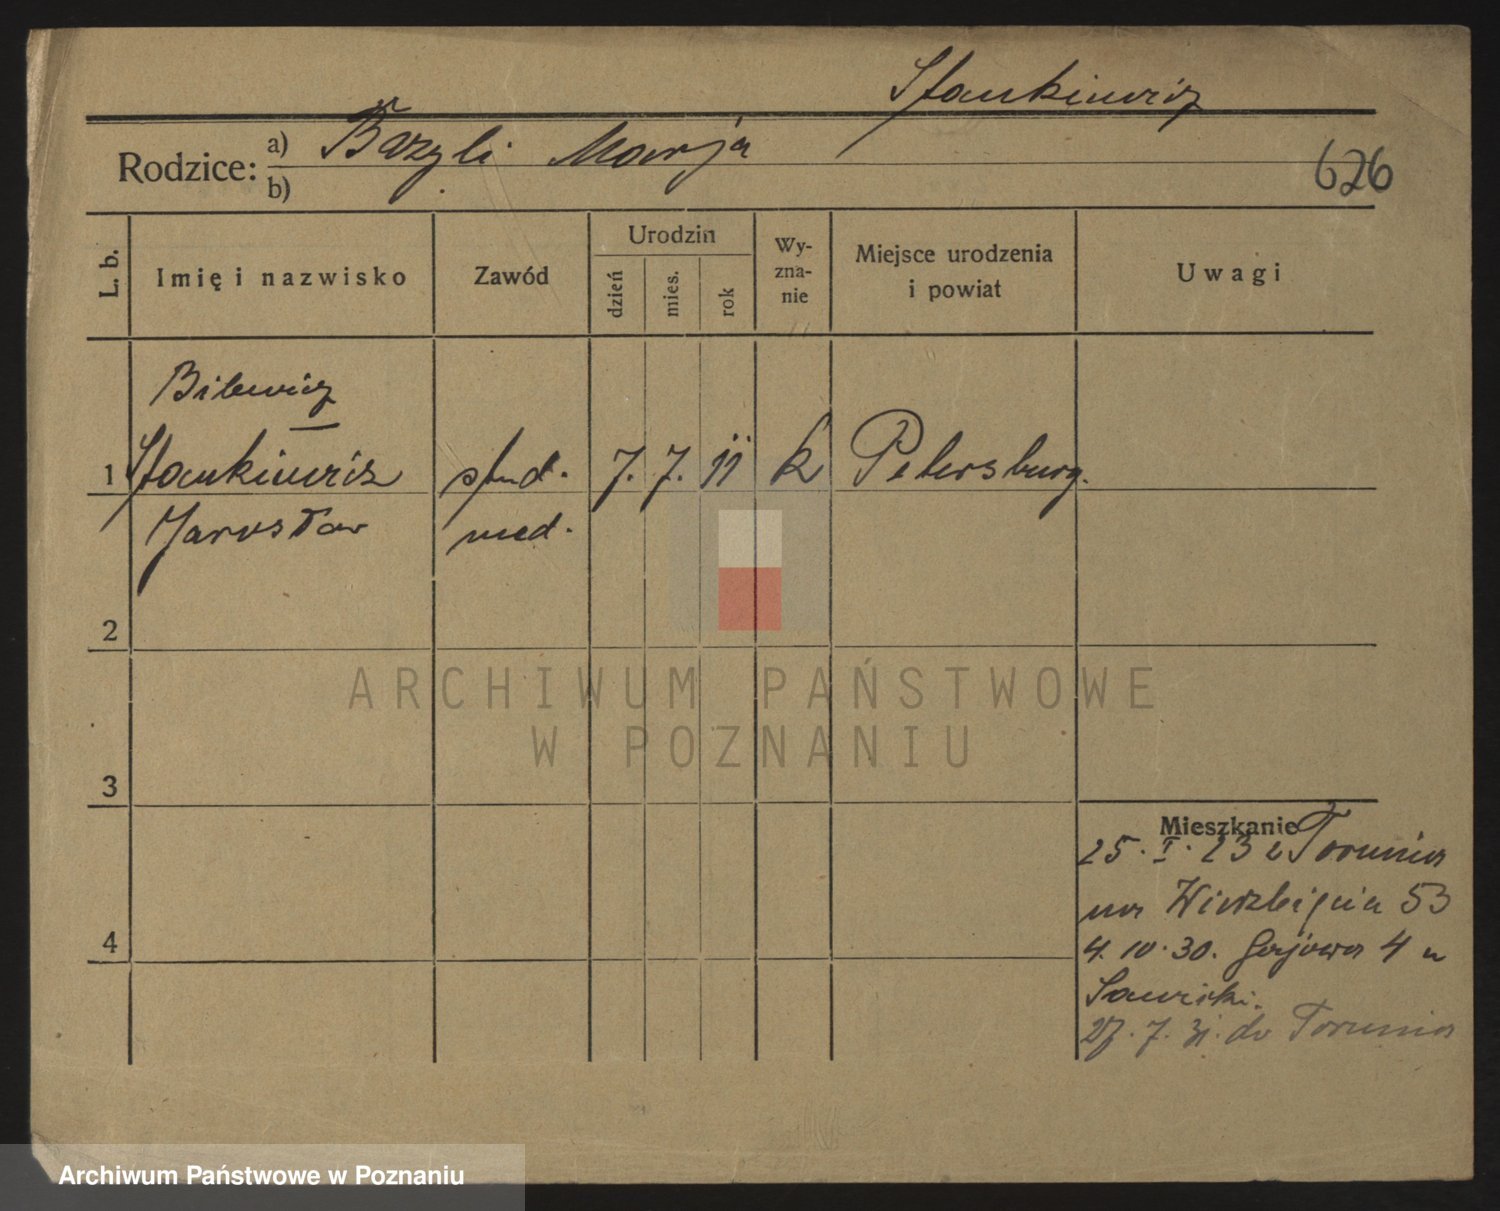 Stankiewicz
Rodzice: a) Bazyli Marja
b)
626
L. b.
Imię i nazwisko
Zawód
Urodzin
dzień
mies.
rok
Wy-
zna-
nie
Miejsce urodzenia
i powiat
Uwagi
Bilewicz
1 Stankiewicz stud. 7. 7. 11 k Petersburg.
Jarosław med.
2
3
4
Mieszkanie
25. I. 23 z Torunia
na Wierzbięcia 53
4. 10. 30. Gajowa 4 u
Sawicki.
27. 7. 31. do Torunia
ARCHIWUM PAŃSTWOWE
W POZNANIU
Archiwum Państwowe w Poznaniu